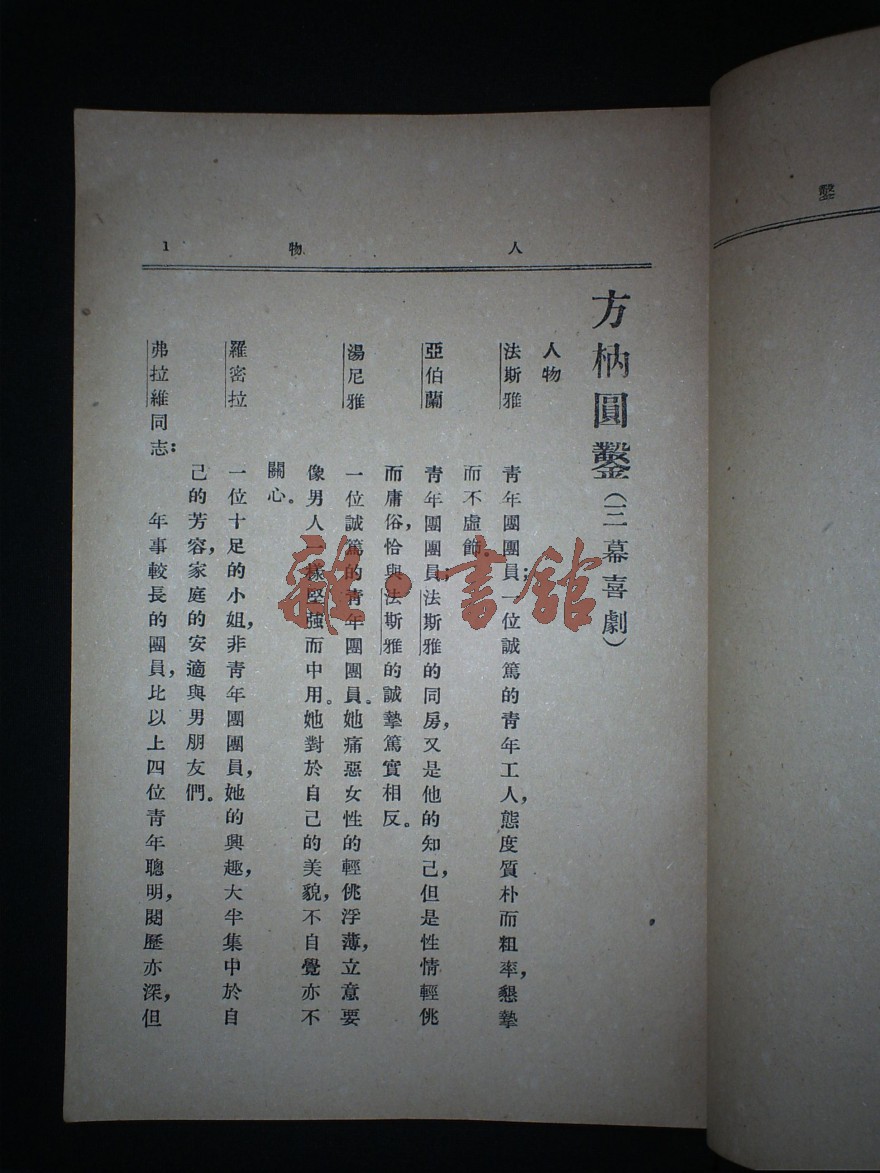 人物 1
方枘圓鑿(三幕喜劇)
人物
法斯雅 青年團團員;一位誠篤的青年工人,態度質朴而粗率,懇摯
而不虛飾。
亞伯蘭 青年團團員;法斯雅的同房,又是他的知己,但是性情輕佻
而庸俗,恰與法斯雅的誠摯篤實相反。
湯尼雅 一位誠篤的青年團團員。她痛惡女性的輕佻浮薄,立意要
像男人一樣堅強而中用。她對於自己的美貌,不自覺亦不
關心。
羅密拉 一位十足的小姐,非青年團團員,她的興趣,大半集中於自
己的芳容,家庭的安適與男朋友們。
弗拉維同志: 年事較長的團員,比以上四位青年聰明,閱歷亦深,但
鑿
雜·書館